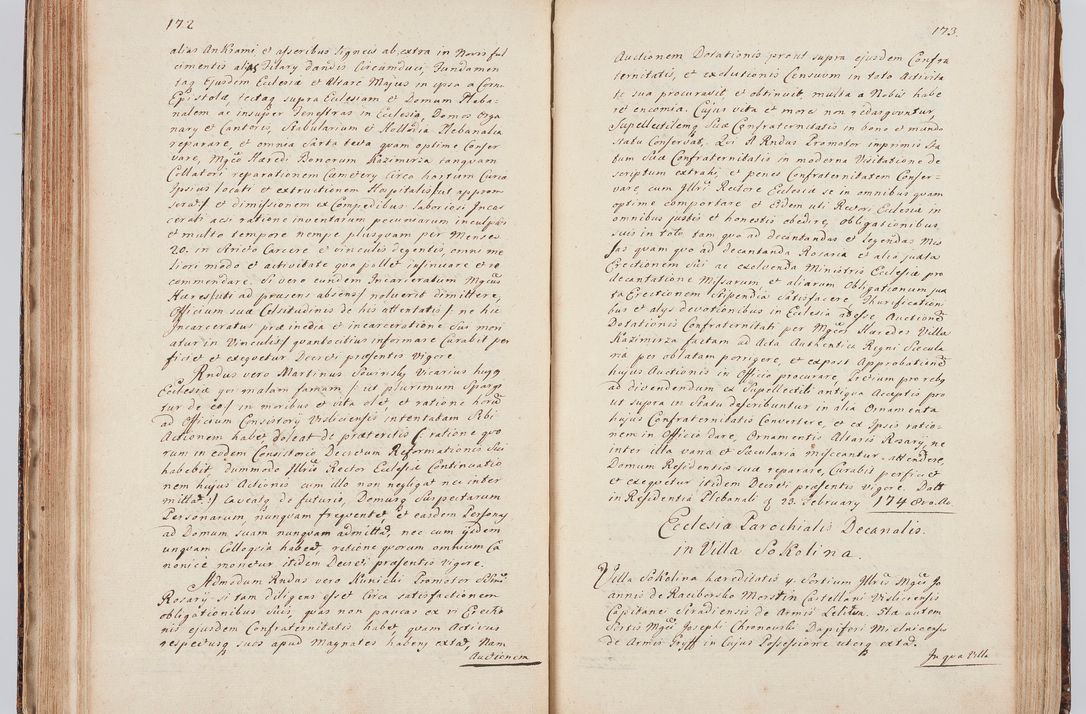 172
alias Ankrami et asseribus ligneis ab extra in Novis ful
cimentis alias Filary dandis circumduci, Fundamen
ta ejusdem Ecclesiæ et Altare Majus in ipsa a Cornu
Epistolæ, tecta supra Ecclesiam et Domum Pleba-
nalem ac insuper Fenestras in Ecclesia, Domos Orga
nary et Cantoris, Stabularium et Hollodia Plebanalia
reparare, et omnia sarta tecta quam optime Conser
vare, Mgco Hæredi Bonorum Kazimirza tanquam
Collatori reparationem Cæmetery Circa hortum Curiæ
ipsius locati et extructionem Hospitalis/ut apprem
serat/ et dimissionem ex Compedibus laboriosi Incar
cerati acsi ratione inventarum pecuniarum inculpati
et multo tempore nempe plusquam per Menses
20. in Arcto Carcere et vinculis degentis, omni me
liori modo et activitate qua pollet insinuare et re
commendare. Si vero eundem Incarceratum Mgcus
Hæres/uti ad præsens absens/ noluerit dimittere,
Officium suæ Celsitudinis de his attentatis/ ne hic
Incarceratus præ inedia et incarceratione suâ mori
atur in Vinculis/ quantocitius informare Curabit per
ficiet et exequetur Decreti præsentis vigore.
Rndus vero Martinus Sowinsky Vicarius hujus
Ecclesiæ qui malam famam/ ut plurimum Spargi
tur de eo/ in moribus et vita olet, et ratione horum
ad Officium Consistory Visliciensis intentatam sibi
Actionem habet doleat de præteritis/ ratione quo
rum in eodem Consistorio Decretum Reformationis Sui
habebit, dummodo Illris Rector Ecclesiæ Continuatio
nem hujus Actionis cum illo non negligat nec inter
mittat/ Caveatq de futuris, Demurq Suspectarum
Personarum, nunquam frequentet, et easdem Personas
ad Domum suam nunquam admittat, nec cum ijsdem
unquam Colloquia habeat, ratione quorum omnium Ca
nonice monetur itidem Decreti præsentis vigore.
Admodum Rndus vero Kunicki Promotor Ssmi
Rosary si tam diligens esset circa satisfactionem
obligationibus suis, quas non paucas ex vi Erectio
nis ejusdem Confraternitatis habet, quam Activus
respectusq suos apud Magnates habens extat, Nam
Auctionem
173.
Auctionem Dotationis prout supra ejusdem Confra
ternitatis, et exolutionis Censuum in toto Activita
te sua procuravit et obtinuit, multa a Nobis habe
ret encomia. Cujus vita et mores non redarguuntur,
Supellectilemq Suæ Confraternitatis in bono et mundo
Statu Conservat. Qui A Rndus Promotor inprimis Sta
tum Suæ Confraternitatis in moderna Visitatione de
scriptum extrahi, et penes Confraternitatem Conser-
vare, cum Illri Rectore Ecclesiæ se in omnibus quam
optime comportare et Eidem uti Rectori Ecclesiæ in
omnibus justis et honestis obedire, obligationibus
suis in toto tam quo ad decantandas et legendas Mis
sas quam quo ad decantanda Rosaria et alia juxta
Erectionem sui ac exolvenda Ministris Ecclesiæ pro
decantatione Missarum et aliarum Obligationum jux
ta Erectionem Stipendia Satisfacere, Thurificationi
bus et alys devotionibus in Ecclesia adesse, Auctionem
Dotationis Confraternitati per Mgcos Hæredes Villæ
Kazimirza factam ad Acta Authentica Regni Sæcula
ria per oblatam porrigere, et expost Approbationem
hujus Auctionis in Officio procurare, Pretium pro rebus
ad divendendum ex Supellectili antiqua Acceptis pro
ut supra in Statu describuntur in alia Ornamenta
hujus Confraternitatis Convertere, et ex ipsis ratio-
nem in Officio dare, Ornamentis Altaris Rosary, ne
inter illa vana et Sæcularia misceantur attendere,
Domum Residentiæ suæ reparare, Curabit perficiet
et exequetur itidem Decreti præsentis vigore. Datt
in Residentia Plebanali d 23. February 1748vo. Ao.
Ecclesia Parochialis Decanalis.
in Villa Sokolina.
Villa Sokolina hæreditatis 4. Sortium Illris Mgci Jo
annis de Raciborsko Morstin Castellani Visliciensis
Capitanei Siradiensis de Armis Leliwa. Sta autem
Sortis Mgci Josephi Chronowski Dapiferi Mielnicensis
de Armis Gryff in Cujus Possessione uterq extat.
In qua Villa